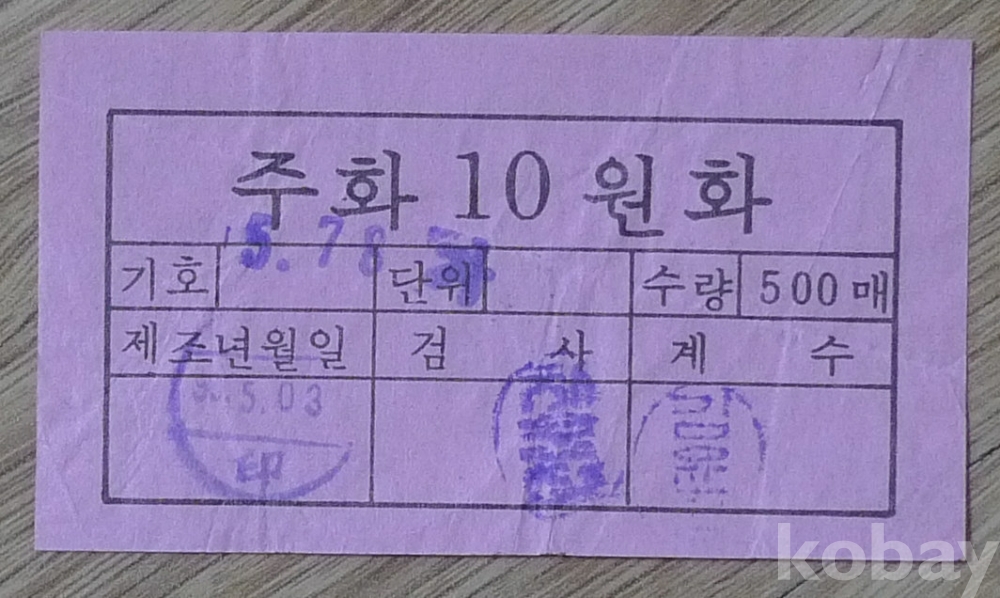 주화 10 원화
5. 78
기호 단위 수량 500매
제조년월일 검 사 계 수
5.03
印
kobay